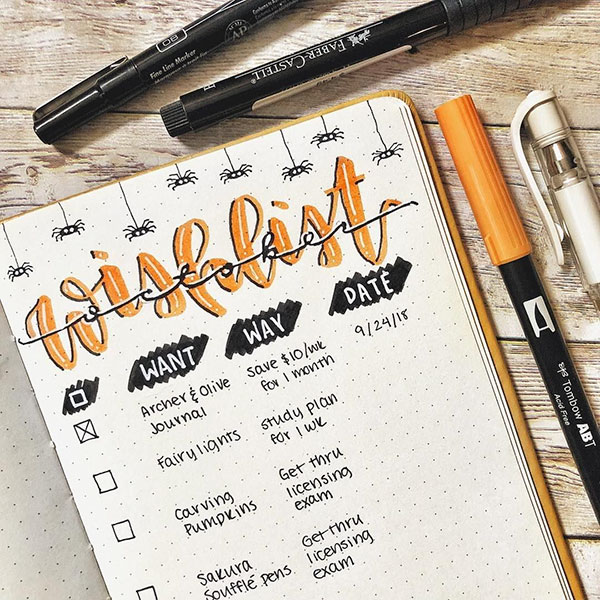 80
Fine Line Marker
FABER-CASTELL
wishlist
october
WANT WAY DATE
Archer & Olive
Journal
Save $10/wk
for 1 month
9/24/18
Fairy lights
Study plan
for 1 wk
Carving
Pumpkins
Get thru
licensing
exam
Sakura
Soufflé pens
Get thru
licensing
exam
Tombow ABT
Acid Free